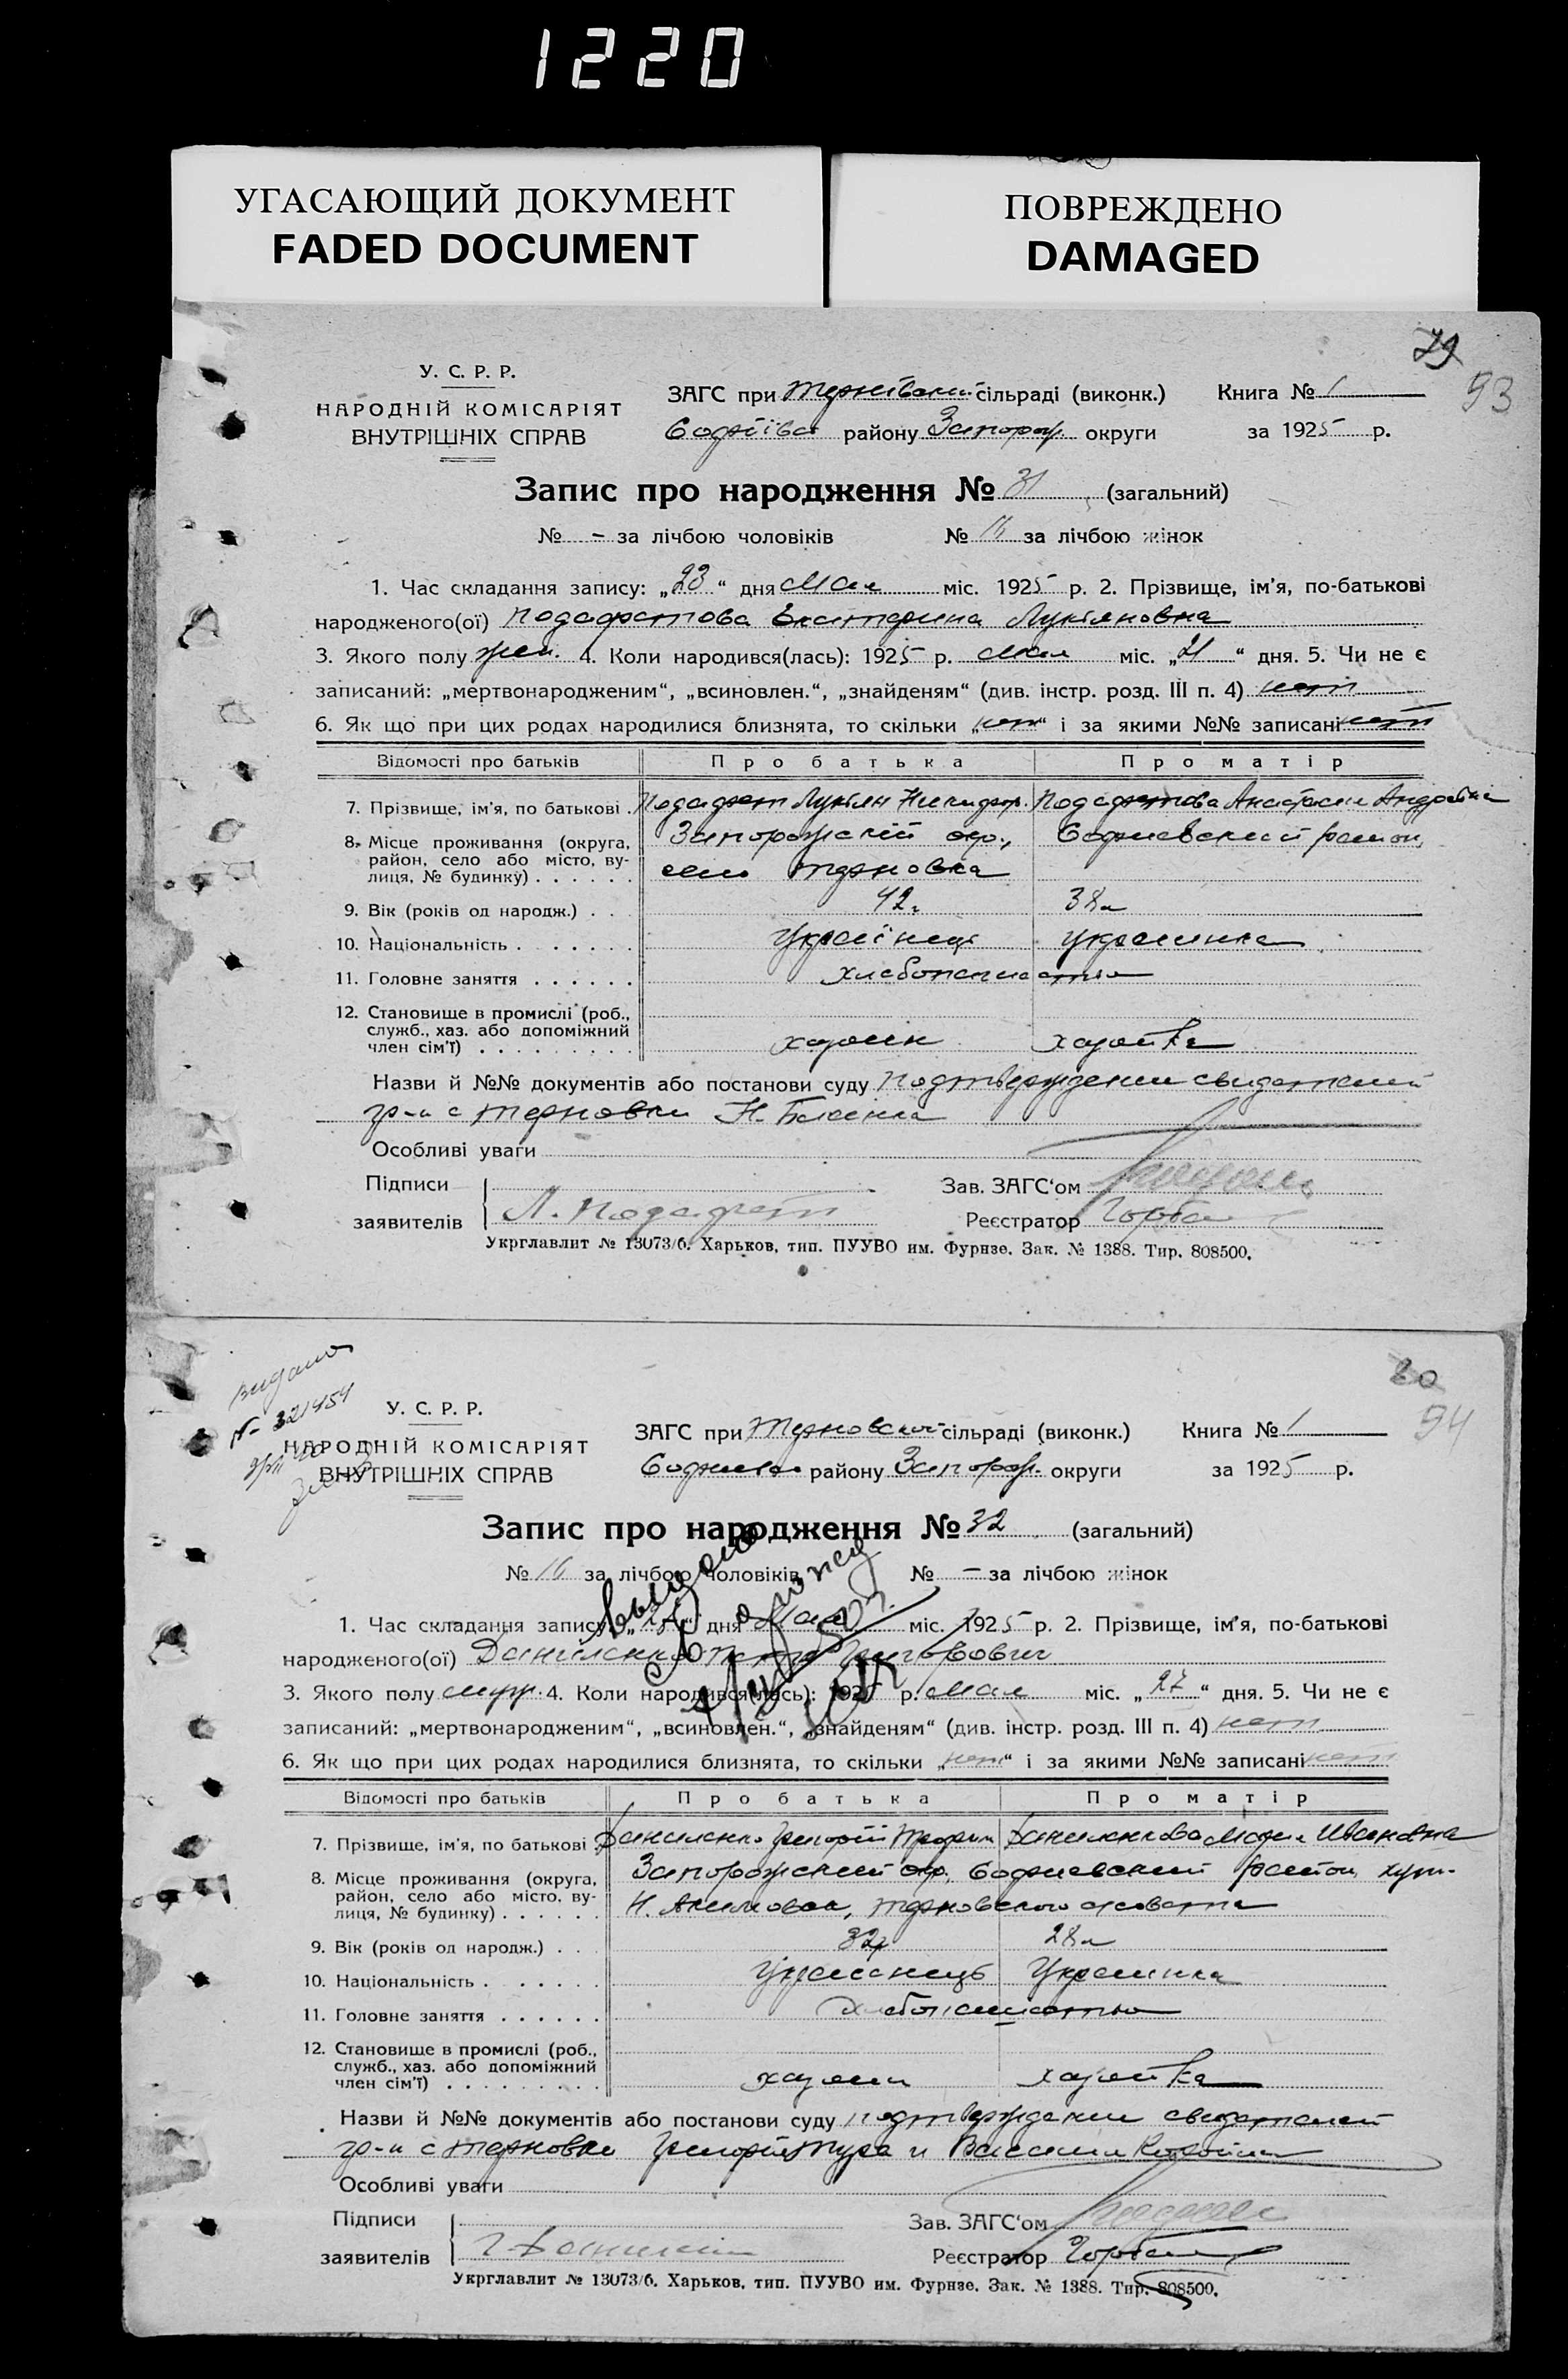 1220
УГАСАЮЩИЙ ДОКУМЕНТ
FADED DOCUMENT
ПОВРЕЖДЕНО
DAMAGED
79
93
У. С. Р. Р.
НАРОДНІЙ КОМІСАРІЯТ
ВНУТРІШНІХ СПРАВ
ЗАГС при сільраді (виконк.) Книга № 1
району Запорож. округи за 1925 р.
Запис про народження № 31 (загальний)
№ - за лічбою чоловіків № 16 за лічбою жінок
1. Час складання запису: „23“ дня Мая міс. 1925 р. 2. Прізвище, ім'я, по-батькові
народженого(ої) Екатерина Лукіяновна
3. Якого полу жен. 4. Коли народився(лась): 1925 р. Мая міс. „21“ дня. 5. Чи не є
записаний: „мертвонародженим“, „всиновлен.“, „знайденям“ (див. інстр. розд. III п. 4) нет
6. Як що при цих родах народилися близнята, то скільки „нет“ і за якими №№ записані нет
Відомості про батьків Про батька Про матір
7. Прізвище, ім'я, по батькові . Лукіян Никифор. Анастасия Андреевна
8. Місце проживання (округа, Запорожский окр., Софиевский район,
район, село або місто, ву-
лиця, № будинку) . . . . . . село Терновка
9. Вік (років од народж.) . . . 42 38
10. Національність . . . . . . . Українець украинка
11. Головне заняття . . . . . . хлебопашество
12. Становище в промислі (роб.,
служб., хаз. або допоміжний
член сім'ї) . . . . . . . . . хазяин хазяйка
Назви й №№ документів або постанови суду подтверждении свидетелей
гр-н с Терновки Н.
Особливі уваги
Підписи
заявителів Л.
Зав. ЗАГС'ом
Реєстратор
Укрглавлит № 13073/6. Харьков, тип. ПУУВО им. Фурнзе. Зак. № 1388. Тир. 808500.
80
94
видано
№ 321454
У. С. Р. Р.
НАРОДНІЙ КОМІСАРІЯТ
ВНУТРІШНІХ СПРАВ
ЗАГС при Терновской сільраді (виконк.) Книга № 1
району Запорож. округи за 1925 р.
Запис про народження № 32 (загальний)
№ 16 за лічбою чоловіків № - за лічбою жінок
1. Час складання запису: дня Мая міс. 1925 р. 2. Прізвище, ім'я, по-батькові
народженого(ої) Даниленко
3. Якого полу муж. 4. Коли народився(лась): 1925 р. Мая міс. „27“ дня. 5. Чи не є
записаний: „мертвонародженим“, „всиновлен.“, „знайденям“ (див. інстр. розд. III п. 4) нет
6. Як що при цих родах народилися близнята, то скільки „нет“ і за якими №№ записані нет
Відомості про батьків Про батька Про матір
7. Прізвище, ім'я, по батькові . Даниленко Григорій Трофим Даниленкова Мария Ивановна
8. Місце проживання (округа, Запорожский окр. Софиевский район, хут.
район, село або місто, ву-
лиця, № будинку) . . . . . . Н. Терновского
9. Вік (років од народж.) . . . 32 28
10. Національність . . . . . . . Українець Украинка
11. Головне заняття . . . . . . хлебопашество
12. Становище в промислі (роб.,
служб., хаз. або допоміжний
член сім'ї) . . . . . . . . . хазяин хазяйка
Назви й №№ документів або постанови суду подтверждении свидетелей
гр-н с Терновки и
Особливі уваги
Підписи
заявителів Г
Зав. ЗАГС'ом
Реєстратор
Укрглавлит № 13073/6. Харьков, тип. ПУУВО им. Фурнзе. Зак. № 1388. Тир. 808500.